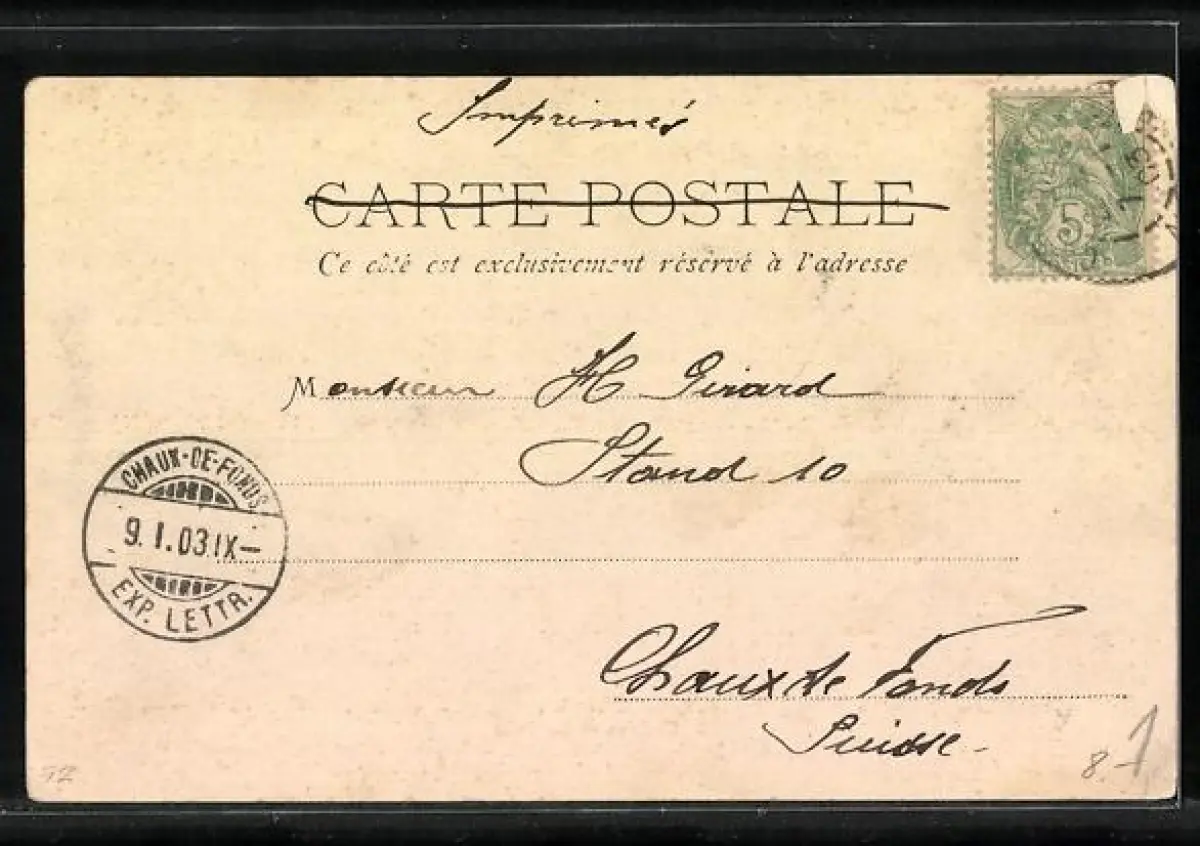 Imprimés
CARTE POSTALE
Ce côté est exclusivement réservé à l'adresse
5
Monsieur H Girard
Stand 10
CHAUX-DE-FONDS
9. I. 03 IX—
EXP. LETTR.
Chaux de Fonds
Suisse -
8.-